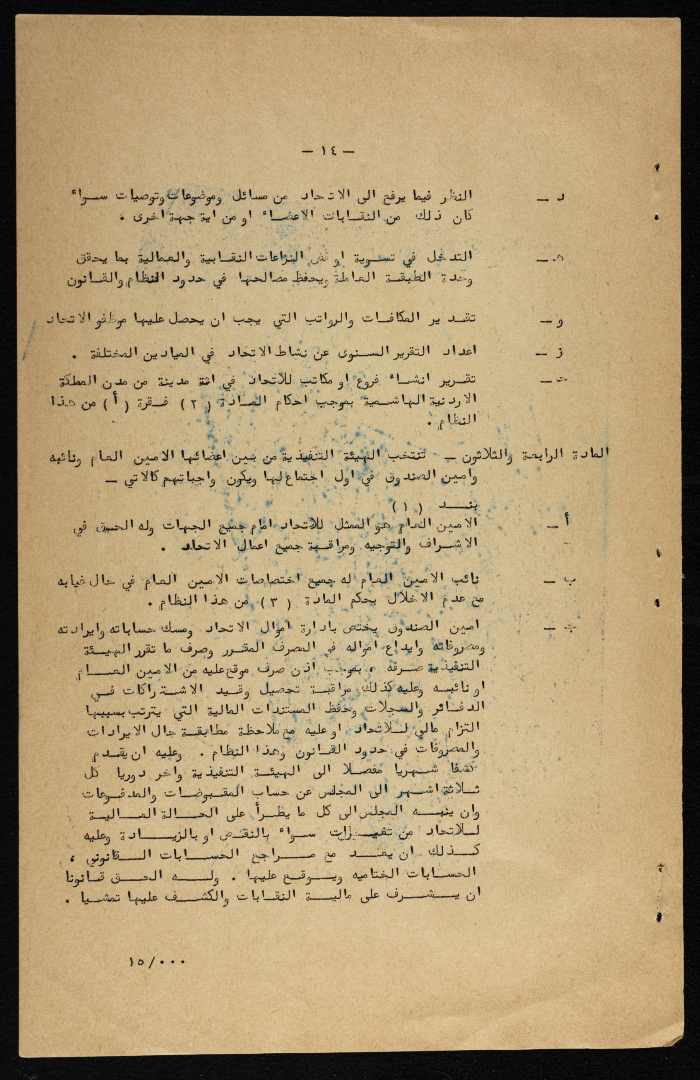 — ١٤ —
د — النظر فيما يرفع الى الاتحاد من مسائل وموضوعات وتوصيات سواء
كان ذلك من النقابات الاعضاء او من اية جهة اخرى .
هـ — التدخل في تسوية او فض النزاعات النقابية والعمالية بما يحقق
وحدة الطبقة العاملة ويحفظ مصالحها في حدود النظام والقانون
و — تقدير المكافات والرواتب التي يجب ان يحصل عليها موظفو الاتحاد
ز — اعداد التقرير السنوى عن نشاط الاتحاد في الميادين المختلفة .
ح — تقرير انشاء فروع او مكاتب للاتحاد في اية مدينة من مدن المملكة
الاردنية الهاشمية بموجب احكام المادة ( ٢ ) فقرة ( أ ) من هذا
النظام .
المادة الرابعة والثلاثون — تنتخب الهيئة التنفيذية من بين اعضائها الامين العام ونائبه
وامين الصندوق في اول اجتماع لها ويكون واجباتهم كالاتي —
بند ( ١ )
أ — الامين العام هو الممثل للاتحاد امام جميع الجهات وله الحق في
الاشراف والتوجيه ومراقبة جميع اعمال الاتحاد .
ب — نائب الامين العام له جميع اختصاصات الامين العام في حال غيابه
مع عدم الاخلال بحكم المادة ( ٣ ) من هذا النظام .
ج — امين الصندوق يختص بادارة اموال الاتحاد ومسك حساباته وايرادته
ومصروفاته وايداع امواله في المصرف المقرر وصرف ما تقرر الهيئة
التنفيذية صرفه ، بموجب اذن صرف موقع عليه من الامين العام
او نائبه وعليه كذلك مراقبة تحصيل وقيد الاشتراكات في
الدفاتر والسجلات وحفظ المستندات المالية التي يترتب بسببها
التزام مالي للاتحاد او عليه مع ملاحظة مطابقة حال الايرادات
والمصروفات في حدود القانون وهذا النظام . وعليه ان يقدم
كشفا شهريا مفصلا الى الهيئة التنفيذية واخر دوريا كل
ثلاثة اشهر الى المجلس عن حساب المقبوضات والمدفوعات
وان ينبه المجلس الى كل ما يطرأ على الحالة المالية
للاتحاد من تغييرات سواء بالنقص او بالزيادة وعليه
كذلك ان يعد مع مراجع الحسابات القانوني ،
الحسابات الختاميه ويوقع عليها . وله الحق قانونا
ان يشرف على مالية النقابات والكشف عليها تمشيا .
١٥/٠٠٠